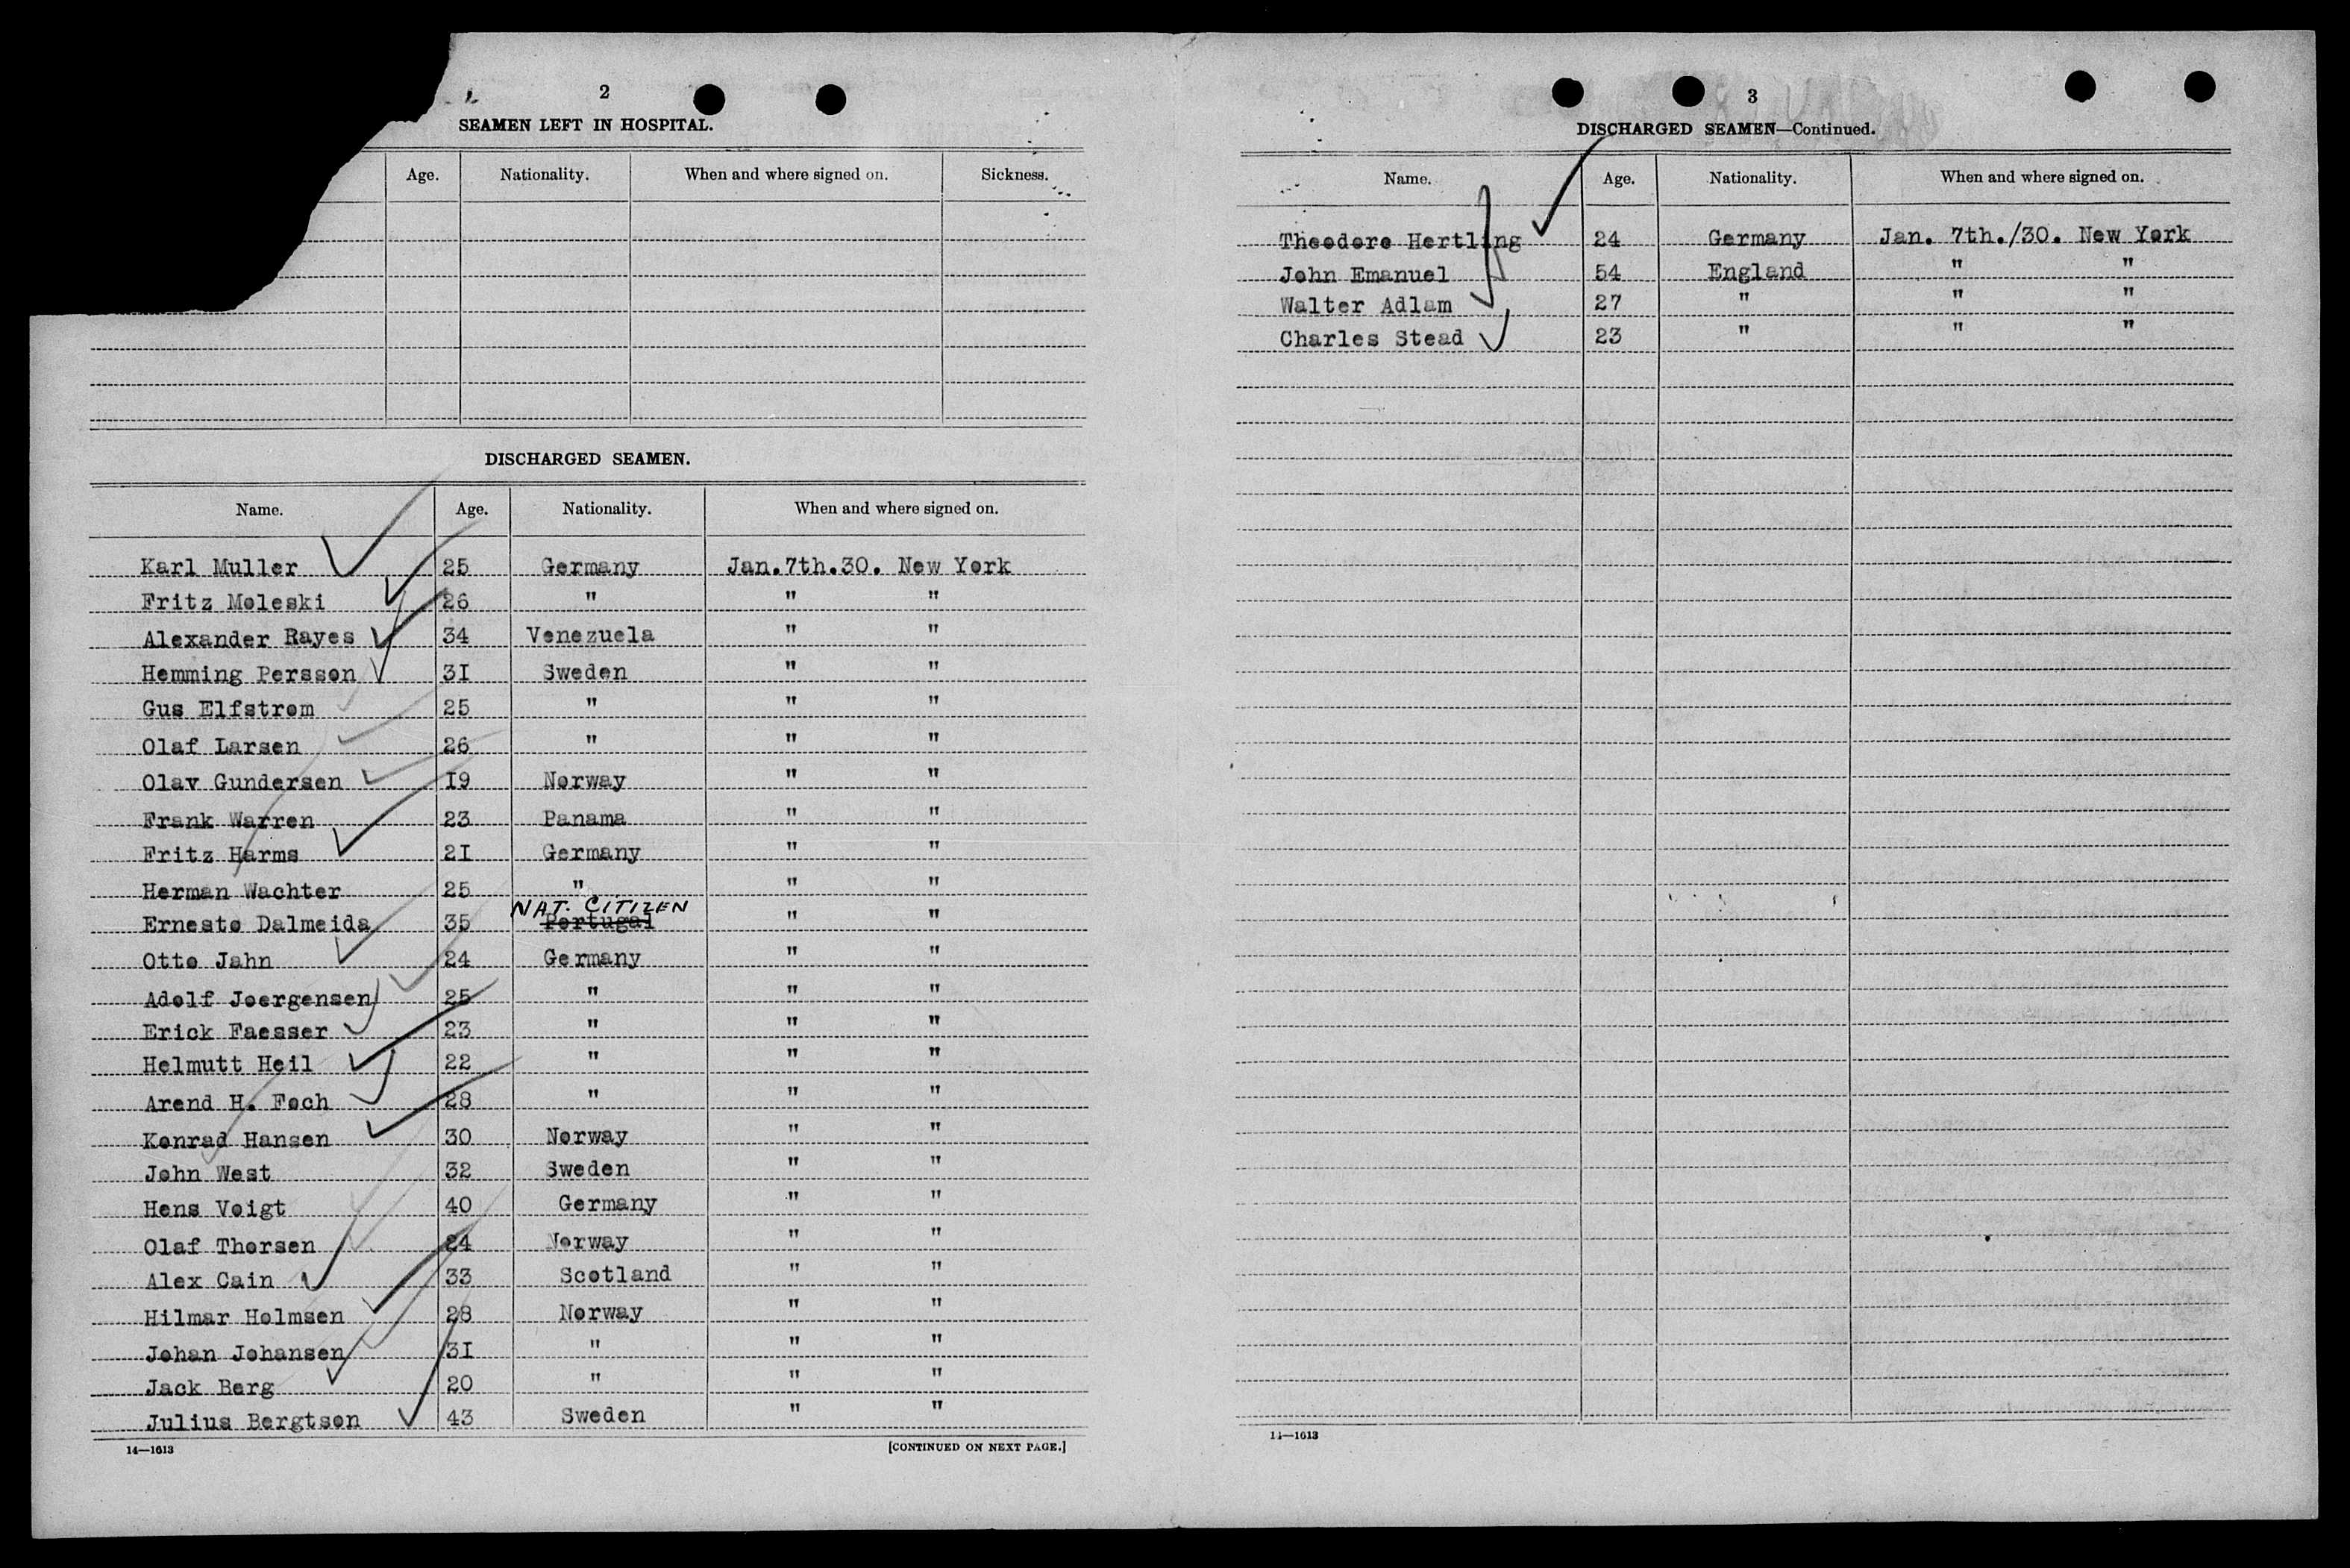 2
SEAMEN LEFT IN HOSPITAL.
Age. Nationality. When and where signed on. Sickness.
DISCHARGED SEAMEN.
Name. Age. Nationality. When and where signed on.
Karl Muller 25 Germany Jan.7th.30. New York
Fritz Moleski 26 " " "
Alexander Rayes 34 Venezuela " "
Hemming Persson 31 Sweden " "
Gus Elfstrom 25 " " "
Olaf Larsen 26 " " "
Olav Gundersen 19 Norway " "
Frank Warren 23 Panama " "
Fritz Harms 21 Germany " "
Herman Wachter 25 " " "
NAT. CITIZEN
Ernesto Dalmeida 35 Portugal " "
Otto Jahn 24 Germany " "
Adolf Joergensen 25 " " "
Erick Faesser 23 " " "
Helmutt Heil 22 " " "
Arend H. Foch 28 " " "
Konrad Hansen 30 Norway " "
John West 32 Sweden " "
Hens Voigt 40 Germany " "
Olaf Thorsen 24 Norway " "
Alex Cain 33 Scotland " "
Hilmar Holmsen 28 Norway " "
Johan Johansen 31 " " "
Jack Berg 20 " " "
Julius Bergtson 43 Sweden " "
14—1613 [CONTINUED ON NEXT PAGE.]
3
DISCHARGED SEAMEN—Continued.
Name. Age. Nationality. When and where signed on.
Theodore Hertling 24 Germany Jan. 7th./30. New York
John Emanuel 54 England " "
Walter Adlam 27 " " "
Charles Stead 23 " " "
14—1613